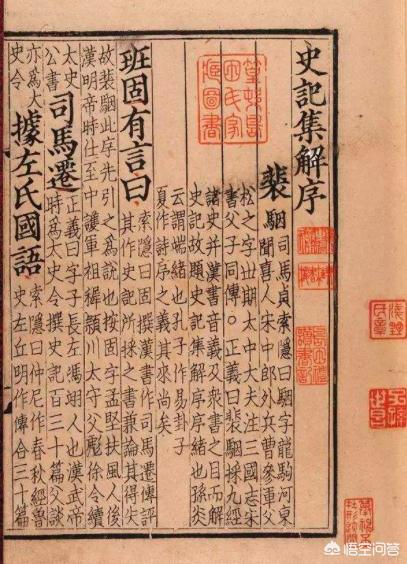 史記集解序
裴駰
司馬貞索隱曰駰字龍駒河東
聞喜人宋中郎外兵曹參軍父
松之字丗期太中大夫注三國志宋
書父子同傳○正義曰裴駰採九經
諸史并漢書音義及衆書之目而解
史記故題史記集解序序緒也孫炎
云謂端緒也孔子作易卦子
夏作詩序之義其來尚矣
班固有言曰
索隱曰固撰漢書作司馬遷傳評
其作史記所採之書兼論其得失
故裴駰此序先引之爲說也按固字孟堅扶風人後
漢明帝時仕至中護軍祖穉潁川太守父彪徐令續
太史
公書
司馬遷
正義曰字子長左馮翊人也漢武帝
時爲太史令撰史記百三十篇父談
亦爲太
史令
據左氏國語
索隱曰仲尼作春秋經魯
史左丘明作傳合三十篇
悟空问答